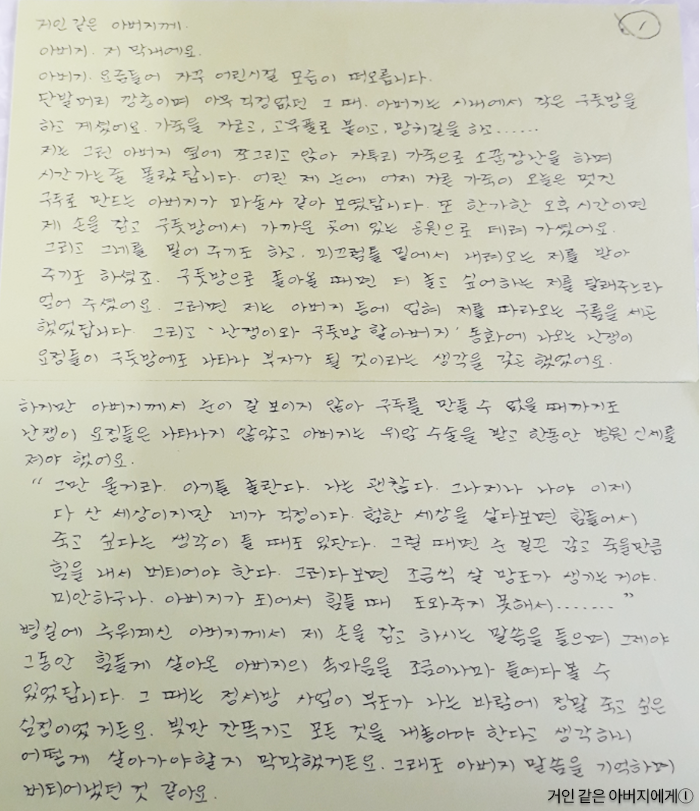 ①
거인 같은 아버지께.
아버지. 저 막내예요.
아버지. 요즘들어 자꾸 어린시절 모습이 떠오릅니다.
단발머리 깡충이며 아무 걱정없던 그 때. 아버지는 시내에서 작은 구둣방을
하고 계셨어요. 가죽을 자르고, 고무풀로 붙이고, 망치질을 하고......
저는 그런 아버지 옆에 쪼그리고 앉아 자투리 가죽으로 소꿉장난을 하며
시간가는줄 몰랐답니다. 어린 제 눈에 어제 자른 가죽이 오늘은 멋진
구두로 만드는 아버지가 마술사 같아 보였답니다. 또 한가한 오후 시간이면
제 손을 잡고 구둣방에서 가까운 곳에 있는 공원으로 데려 가셨어요.
그리고 그네를 밀어 주기도 하고. 미끄럼틀 밑에서 내려오는 저를 받아
주기도 하셨죠. 구둣방으로 돌아올 때면 더 놀고 싶어하는 저를 달래주느라
업어 주셨어요. 그러면 저는 아버지 등에 업혀 저를 따라오는 구름을 세곤
했었답니다. 그리고 '난쟁이와 구둣방 할아버지' 동화에 나오는 난쟁이
요정들이 구둣방에도 나타나 부자가 될 것이라는 생각을 갖곤 했었어요.
하지만 아버지께서 눈이 잘 보이지 않아 구두를 만들 수 없을 때까지도
난쟁이 요정들은 나타나지 않았고 아버지는 위암 수술을 받고 한동안 병원 신세를
져야 했어요.
"그만 울거라. 아기들 놀란다. 나는 괜찮다. 그나저나 나야 이제
다 산 세상이지만 네가 걱정이다. 험한 세상을 살다보면 힘들어서
죽고 싶다는 생각이 들 때도 있단다. 그럴 때면 눈 질끈 감고 죽을만큼
힘을 내서 버티어야 한다. 그러다보면 조금씩 살 망도가 생기는 거야.
미안하구나. 아버지가 되어서 힘들 때 도와주지 못해서......."
병실에 누워계신 아버지께서 제 손을 잡고 하시는 말씀을 들으며 그제야
그동안 힘들게 살아온 아버지의 속마음을 조금이나마 들여다 볼 수
있었답니다. 그 때는 정서방 사업이 부도가 나는 바람에 정말 죽고 싶은
심정이었거든요. 빚만 잔뜩지고 모든 것을 내놓아야 한다고 생각하니
어떻게 살아가야할지 막막했거든요. 그래도 아버지 말씀을 기억하며
버티어냈던 것 같아요.
거인 같은 아버지에게①